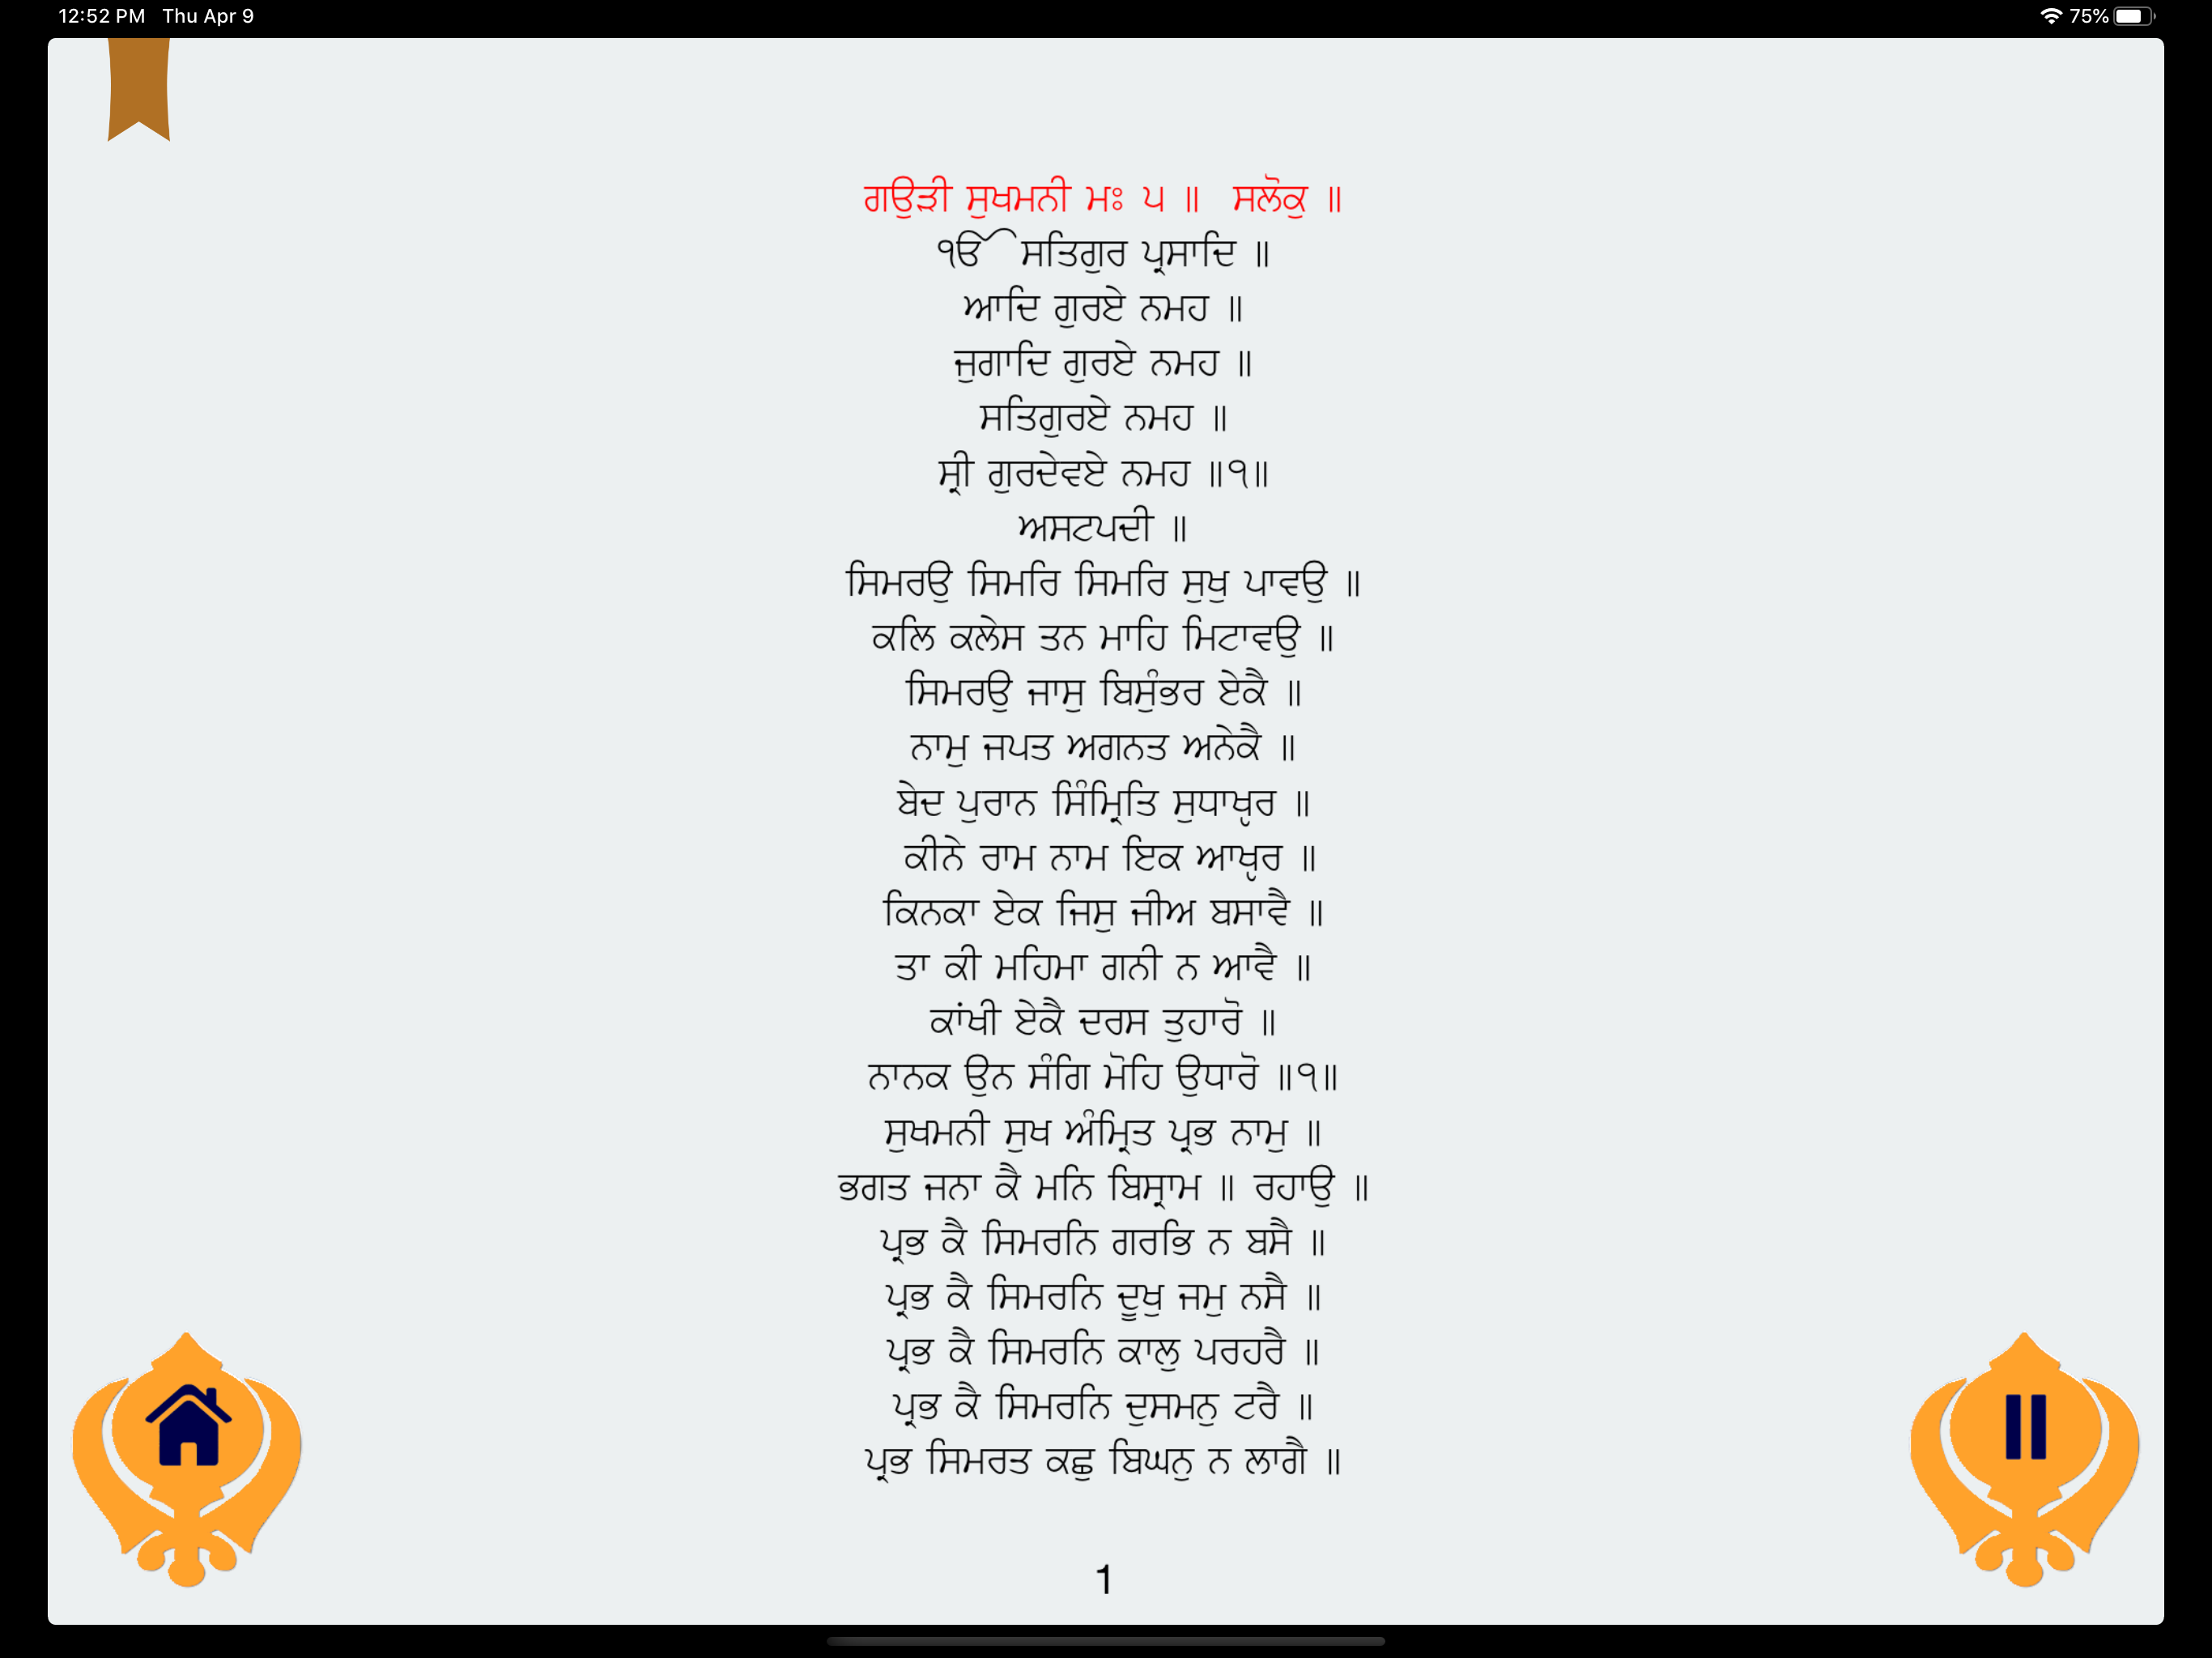 12:52 PM Thu Apr 9 75%
ਗਉੜੀ ਸੁਖਮਨੀ ਮਃ ੫ ॥ ਸਲੋਕੁ ॥
ੴ ਸਤਿਗੁਰ ਪ੍ਰਸਾਦਿ ॥
ਆਦਿ ਗੁਰਏ ਨਮਹ ॥
ਜੁਗਾਦਿ ਗੁਰਏ ਨਮਹ ॥
ਸਤਿਗੁਰਏ ਨਮਹ ॥
ਸ੍ਰੀ ਗੁਰਦੇਵਏ ਨਮਹ ॥੧॥
ਅਸਟਪਦੀ ॥
ਸਿਮਰਉ ਸਿਮਰਿ ਸਿਮਰਿ ਸੁਖੁ ਪਾਵਉ ॥
ਕਲਿ ਕਲੇਸ ਤਨ ਮਾਹਿ ਮਿਟਾਵਉ ॥
ਸਿਮਰਉ ਜਾਸੁ ਬਿਸੁੰਭਰ ਏਕੈ ॥
ਨਾਮੁ ਜਪਤ ਅਗਨਤ ਅਨੇਕੈ ॥
ਬੇਦ ਪੁਰਾਨ ਸਿੰਮ੍ਰਿਤਿ ਸੁਧਾਖੵਰ ॥
ਕੀਨੇ ਰਾਮ ਨਾਮ ਇਕ ਆਖੵਰ ॥
ਕਿਨਕਾ ਏਕ ਜਿਸੁ ਜੀਅ ਬਸਾਵੈ ॥
ਤਾ ਕੀ ਮਹਿਮਾ ਗਨੀ ਨ ਆਵੈ ॥
ਕਾਂਖੀ ਏਕੈ ਦਰਸ ਤੁਹਾਰੋ ॥
ਨਾਨਕ ਉਨ ਸੰਗਿ ਮੋਹਿ ਉਧਾਰੋ ॥੧॥
ਸੁਖਮਨੀ ਸੁਖ ਅੰਮ੍ਰਿਤ ਪ੍ਰਭ ਨਾਮੁ ॥
ਭਗਤ ਜਨਾ ਕੈ ਮਨਿ ਬਿਸ੍ਰਾਮ ॥ ਰਹਾਉ ॥
ਪ੍ਰਭ ਕੈ ਸਿਮਰਨਿ ਗਰਭਿ ਨ ਬਸੈ ॥
ਪ੍ਰਭ ਕੈ ਸਿਮਰਨਿ ਦੂਖੁ ਜਮੁ ਨਸੈ ॥
ਪ੍ਰਭ ਕੈ ਸਿਮਰਨਿ ਕਾਲੁ ਪਰਹਰੈ ॥
ਪ੍ਰਭ ਕੈ ਸਿਮਰਨਿ ਦੁਸਮਨੁ ਟਰੈ ॥
ਪ੍ਰਭ ਸਿਮਰਤ ਕਛੁ ਬਿਘਨੁ ਨ ਲਾਗੈ ॥
1